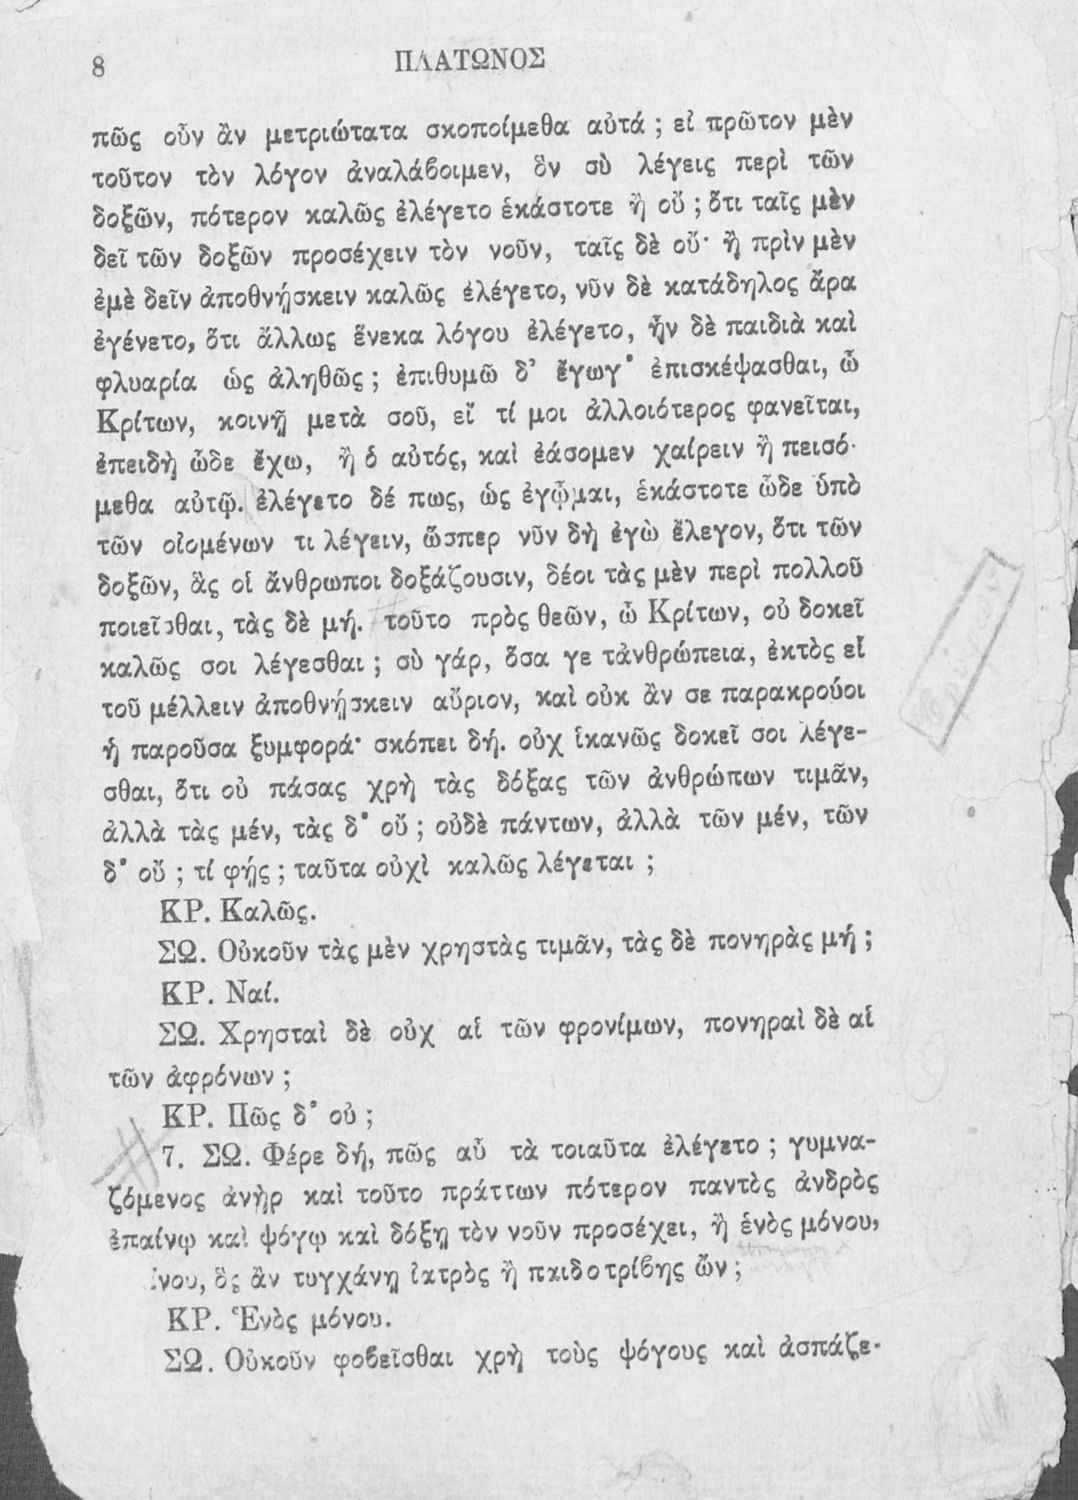 8 ΠΛΑΤΩΝΟΣ
πῶς οὖν ἂν μετριώτατα σκοποίμεθα αὐτά ; εἰ πρῶτον μὲν
τοῦτον τὸν λόγον ἀναλάβοιμεν, ὃν σὺ λέγεις περὶ τῶν
δοξῶν, πότερον καλῶς ἐλέγετο ἑκάστοτε ἢ οὔ ; ὅτι ταῖς μὲν
δεῖ τῶν δοξῶν προσέχειν τὸν νοῦν, ταῖς δὲ οὔ· ἢ πρὶν μὲν
ἐμὲ δεῖν ἀποθνῄσκειν καλῶς ἐλέγετο, νῦν δὲ κατάδηλος ἄρα
ἐγένετο, ὅτι ἄλλως ἕνεκα λόγου ἐλέγετο, ἦν δὲ παιδιὰ καὶ
φλυαρία ὡς ἀληθῶς ; ἐπιθυμῶ δ' ἔγωγ' ἐπισκέψασθαι, ὦ
Κρίτων, κοινῇ μετὰ σοῦ, εἴ τί μοι ἀλλοιότερος φανεῖται,
ἐπειδὴ ὧδε ἔχω, ἢ ὁ αὐτός, καὶ ἐάσομεν χαίρειν ἢ πεισό-
μεθα αὐτῷ. ἐλέγετο δέ πως, ὡς ἐγᾦμαι, ἑκάστοτε ὧδε ὑπὸ
τῶν οἰομένων τι λέγειν, ὥσπερ νῦν δὴ ἐγὼ ἔλεγον, ὅτι τῶν
δοξῶν, ἃς οἱ ἄνθρωποι δοξάζουσιν, δέοι τὰς μὲν περὶ πολλοῦ
ποιεῖσθαι, τὰς δὲ μή. τοῦτο πρὸς θεῶν, ὦ Κρίτων, οὐ δοκεῖ
καλῶς σοι λέγεσθαι ; σὺ γάρ, ὅσα γε τἀνθρώπεια, ἐκτὸς εἶ
τοῦ μέλλειν ἀποθνῄσκειν αὔριον, καὶ οὐκ ἂν σε παρακρούοι
ἡ παροῦσα ξυμφορά· σκόπει δή. οὐχ ἱκανῶς δοκεῖ σοι λέγε-
σθαι, ὅτι οὐ πάσας χρὴ τὰς δόξας τῶν ἀνθρώπων τιμᾶν,
ἀλλὰ τὰς μέν, τὰς δ' οὔ ; οὐδὲ πάντων, ἀλλὰ τῶν μέν, τῶν
δ' οὔ ; τί φῄς ; ταῦτα οὐχὶ καλῶς λέγεται ;
ΚΡ. Καλῶς.
ΣΩ. Οὐκοῦν τὰς μὲν χρηστὰς τιμᾶν, τὰς δὲ πονηρὰς μή ;
ΚΡ. Ναί.
ΣΩ. Χρησταὶ δὲ οὐχ αἱ τῶν φρονίμων, πονηραὶ δὲ αἱ
τῶν ἀφρόνων ;
ΚΡ. Πῶς δ' οὐ ;
7. ΣΩ. Φέρε δή, πῶς αὖ τὰ τοιαῦτα ἐλέγετο ; γυμνα-
ζόμενος ἀνὴρ καὶ τοῦτο πράττων πότερον παντὸς ἀνδρὸς
ἐπαίνῳ καὶ ψόγῳ καὶ δόξῃ τὸν νοῦν προσέχει, ἢ ἑνὸς μόνου,
ίνου, ὃς ἂν τυγχάνῃ ἰατρὸς ἢ παιδοτρίβης ὤν ;
ΚΡ. Ἑνὸς μόνου.
ΣΩ. Οὐκοῦν φοβεῖσθαι χρὴ τοὺς ψόγους καὶ ἀσπάζε-